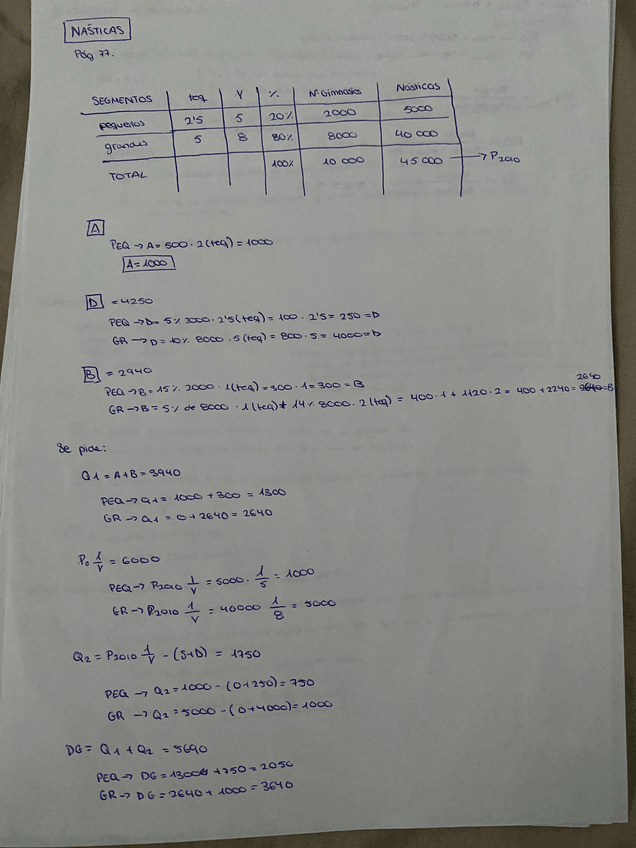 NÁSTICAS
Pág 77.
SEGMENTOS teq V % Nº Gimnasios Násticas
pequeños 2'5 5 20% 2000 5000
grandes 5 8 80% 8000 40 000
TOTAL 100% 10 000 45 000 → P2010
A
PEQ → A = 500 · 2 (teq) = 1000
A = 1000
D = 4250
PEQ → D = 5% 2000 · 2'5 (teq) = 100 · 2'5 = 250 = D
GR → D = 10% 8000 · 5 (teq) = 800 · 5 = 4000 = D
B = 2940
PEQ → B = 15% 2000 · 1 (teq) = 300 · 1 = 300 = B
GR → B = 5% de 8000 · 1 (teq) + 14% 8000 · 2 (teq) = 400 · 1 + 1120 · 2 = 400 + 2240 = 2640 = B
Se pide:
Q1 = A + B = 3940
PEQ → Q1 = 1000 + 300 = 1300
GR → Q1 = 0 + 2640 = 2640
P0 1/V = 6000
PEQ → P2010 1/V = 5000 · 1/5 = 1000
GR → P2010 1/V = 40000 1/8 = 5000
Q2 = P2010 1/V - (S+D) = 1750
PEQ → Q2 = 1000 - (0+250) = 750
GR → Q2 = 5000 - (0+4000) = 1000
DG = Q1 + Q2 = 5690
PEQ → DG = 1300 + 750 = 2050
GR → DG = 2640 + 1000 = 3640